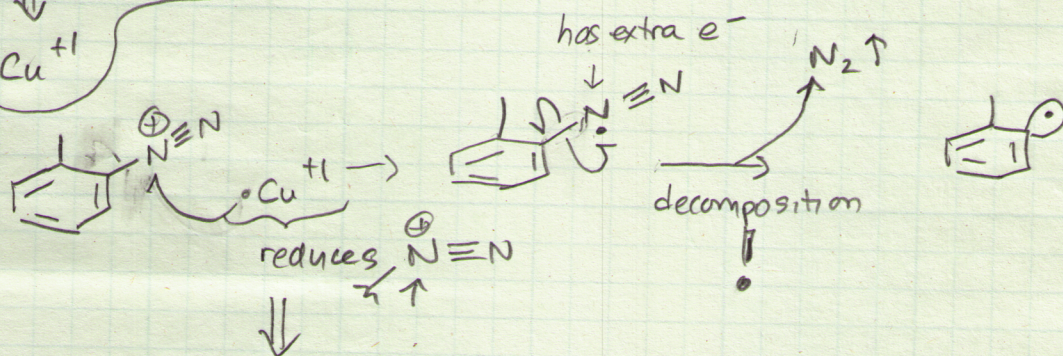 has extra e⁻
N₂ ↑
Cu⁺¹
⊕
N≡N
N≡N
•Cu⁺¹ →
decomposition
!
reduces
⊕
N≡N